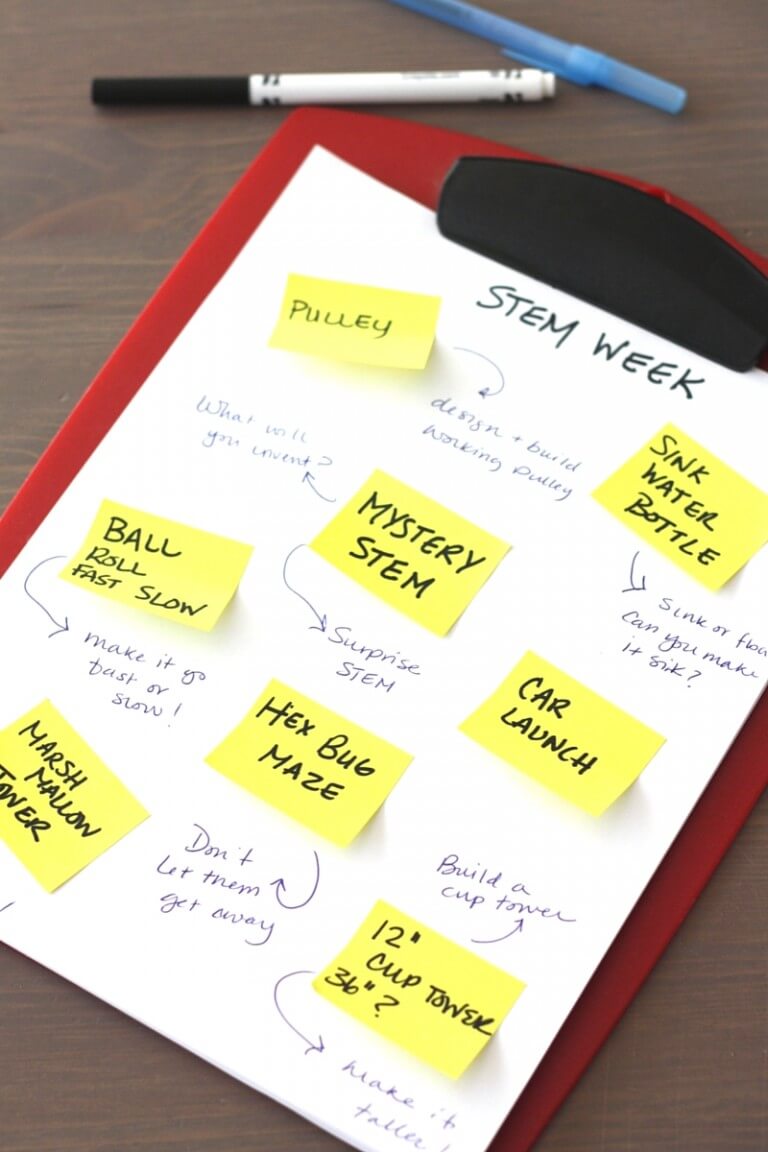 STEM WEEK
PULLEY
design + build
working pulley
What will
you invent?
SINK
WATER
BOTTLE
MYSTERY
STEM
BALL
ROLL
FAST SLOW
Sink or floa
can you make
it sink?
Surprise
STEM
make it go
fast or
slow!
CAR
LAUNCH
HEX BUG
MAZE
MARSH
MALLOW
TOWER
Don't
let them
get away
Build a
cup tower
12"
CUP TOWER
36"?
make it
taller!